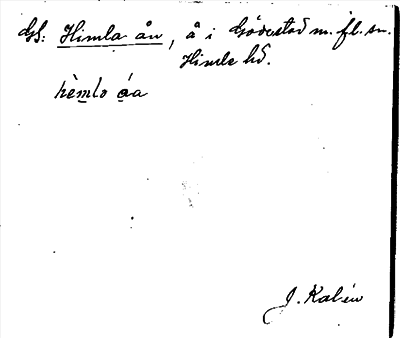 GS: Himla ån, å i Gödestad m. fl. sn.
Himle hd.
hèmlo áa
J. Kalén